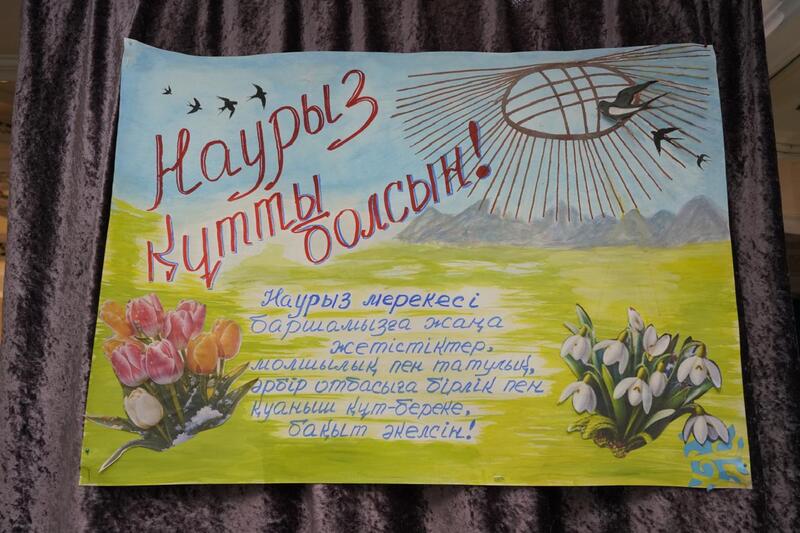 Наурыз
құтты болсын!
Наурыз мерекесі
баршамызға жаңа
жетістіктер,
молшылық пен татулық,
әрбір отбасыға бірлік пен
қуаныш құт-береке,
бақыт әкелсін!